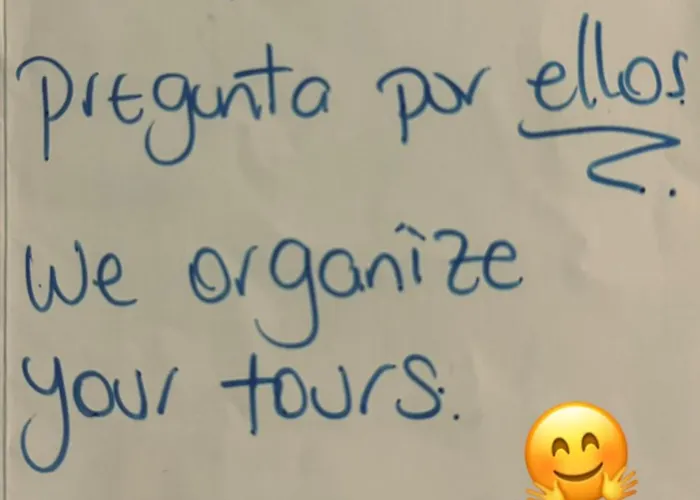 Pregunta por ellos.
We organize
your tours.